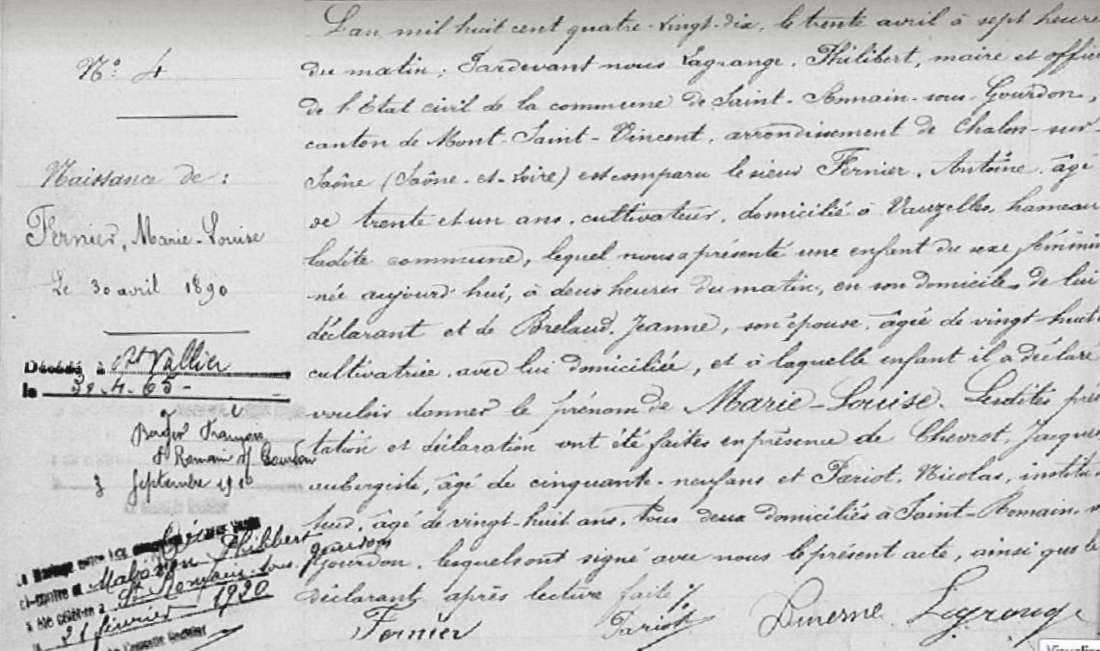 N° 4
Naissance de :
Fernier, Marie-Louise
Le 30 avril 1890
Décédé à St Vallier
le 4-65-
Berger François
St Romain s/ Gourdon
3 septembre 1910
Le Mariage entre
ci-contre et Philibert
a été célébré à St Romain-sous-Gourdon
le 21 février 1920
L'an mil huit cent quatre-vingt-dix, le trente avril à sept heure
du matin ; Pardevant nous Lagrange, Philibert, maire et offici
de l'Etat civil de la commune de Saint-Romain-sous-Gourdon,
canton de Mont-Saint-Vincent, arrondissement de Chalon-sur-
Saône (Saône-et-Loire) est comparu le sieur Fernier, Antoine, âgé
de trente et un ans, cultivateur, domicilié à Vauzelles, hameau
ladite commune, lequel nous a présenté une enfant du sexe féminin
née aujourd'hui, à deux heures du matin, en son domicile, de lui
déclarant et de Brelaud, Jeanne, son épouse, âgée de vingt-huit
cultivatrice, avec lui domiciliée, et à laquelle enfant il a déclaré
vouloir donner le prénom de Marie-Louise. Lesdites prés
tation et déclaration ont été faites en présence de Chevrot, Jacques,
aubergiste, âgé de cinquante-neuf ans et Pariot, Nicolas, institu
teur, âgé de vingt-huit ans, tous deux domiciliés à Saint-Romain-s
Gourdon, lesquels ont signé avec nous le présent acte, ainsi que le
déclarant après lecture faite ./.
Fernier Pariot Lagrange